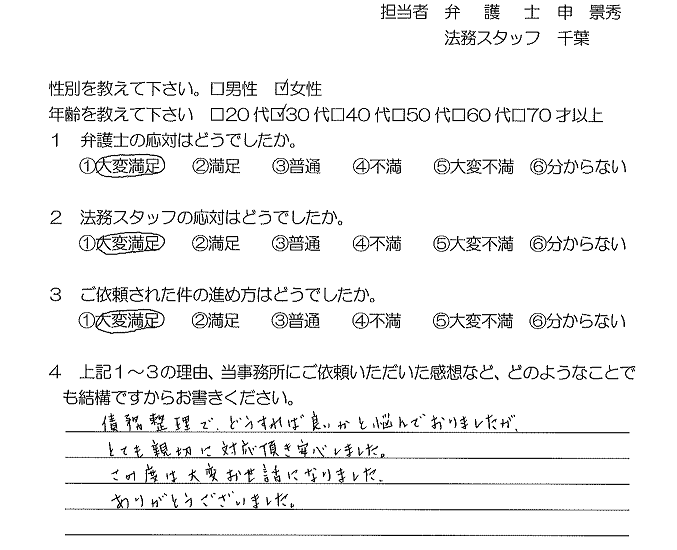 担当者 弁 護 士 申 景秀
法務スタッフ 千葉
性別を教えて下さい。□男性 ☑女性
年齢を教えて下さい □20代☑30代□40代□50代□60代□70才以上
1 弁護士の応対はどうでしたか。
①大変満足 ②満足 ③普通 ④不満 ⑤大変不満 ⑥分からない
2 法務スタッフの応対はどうでしたか。
①大変満足 ②満足 ③普通 ④不満 ⑤大変不満 ⑥分からない
3 ご依頼された件の進め方はどうでしたか。
①大変満足 ②満足 ③普通 ④不満 ⑤大変不満 ⑥分からない
4 上記1~3の理由、当事務所にご依頼いただいた感想など、どのようなことで
も結構ですからお書きください。
債務整理で、どうすれば良いかと悩んでおりましたが、
とても親切に対応頂き安心しました。
この度は大変お世話になりました。
ありがとうございました。